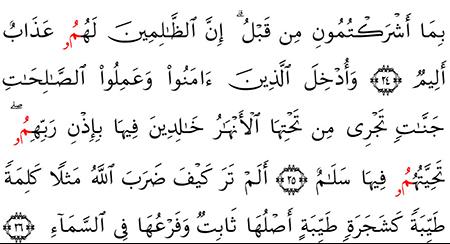 بِمَا أَشْرَكْتُمُونِ مِن قَبْلُ ۗ إِنَّ ٱلظَّٰلِمِينَ لَهُمُۥ عَذَابٌ
أَلِيمٌ ٢٤ وَأُدْخِلَ ٱلَّذِينَ ءَامَنُوا وَعَمِلُوا ٱلصَّٰلِحَٰتِ
جَنَّٰتٍ تَجْرِى مِن تَحْتِهَا ٱلْأَنْهَٰرُ خَٰلِدِينَ فِيهَا بِإِذْنِ رَبِّهِمُۥ ۖ
تَحِيَّتُهُمُۥ فِيهَا سَلَٰمٌ ٢٥ أَلَمْ تَرَ كَيْفَ ضَرَبَ ٱللَّهُ مَثَلًا كَلِمَةً
طَيِّبَةً كَشَجَرَةٍ طَيِّبَةٍ أَصْلُهَا ثَابِتٌ وَفَرْعُهَا فِى ٱلسَّمَآءِ ٢٦